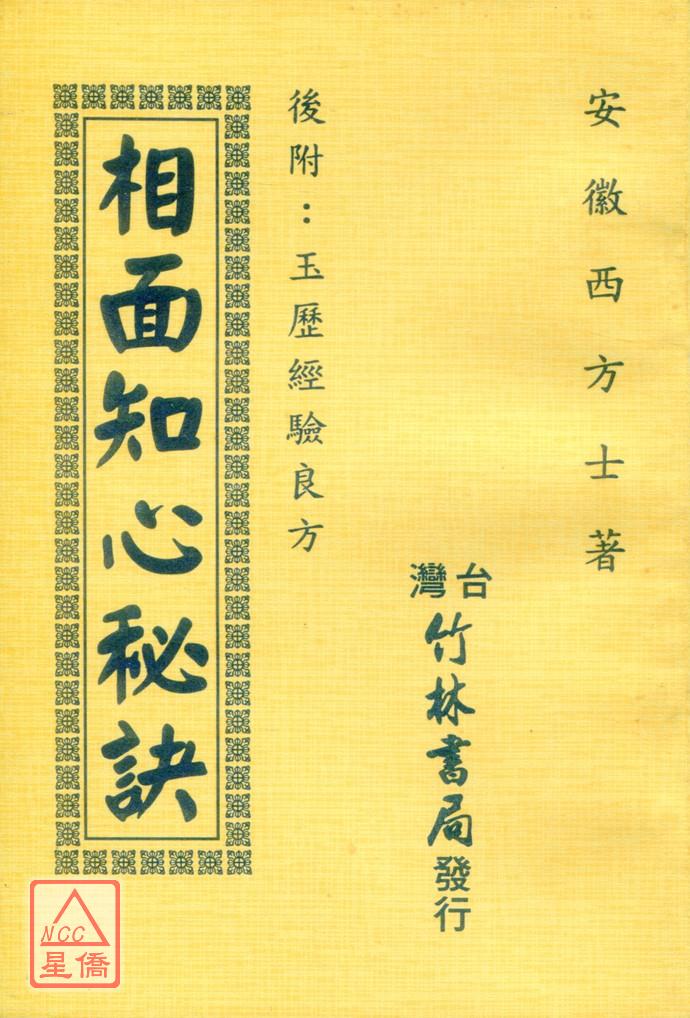 安徽西方士著
台灣
竹林書局發行
後附：玉歷經驗良方
相面知心秘訣
NCC
星僑